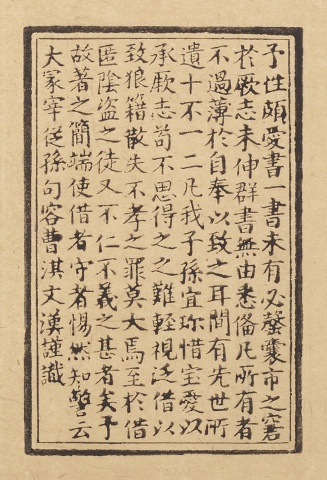 予性頗愛書一書未有必罄囊市之窘
於厥志未伸群書無由悉備凡所有者
不過薄於自奉以致之耳間有先世所
遺十不一二凡我子孫宜珎惜宝愛以
承厥志苟不思得之之難輕視泛借以
致狼籍散失不孝之罪莫大焉至於借
匿陰盜之徒又不仁不義之甚者矣予
故著之簡端使借者守者惕然知警云
大冢宰從孫句容曹淇文漢謹識